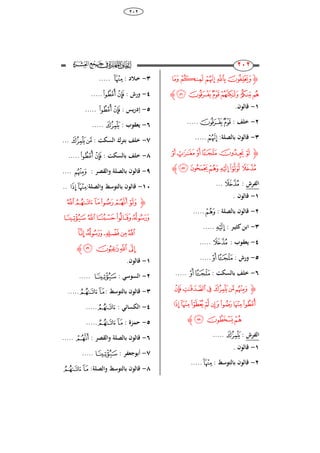 ٢٠٢
﴿ وَيَحْلِفُونَ بِاللَّهِ إِنَّهُمْ لَمِنكُمْ وَمَا
هُم مِّنكُمْ وَلَٰكِنَّهُمْ قَوْمٌ يَفْرَقُونَ ٥٦ ﴾
١- قالون.
٢- خلف : قَوْمٌ يَفْرَقُونَ .....
٣- قالون بالصلة: إِنَّهُمْ .....
﴿ لَوْ يَجِدُونَ مَلْجَـًٔا أَوْ مَغَارَاتٍ أَوْ
مُدَّخَلًا لَّوَلَّوْا إِلَيْهِ وَهُمْ يَجْمَحُونَ ٥٧ ﴾
الفرش : مُدَّخَلًا ...
١- قالون .
٢- قالون بالصلة : وَهُمْ .....
٣- ابن كثير : إِلَيْهِ .....
٤- يعقوب : مُدَّخَلًا .....
٥- ورش : مَلْجَـًٔا أَوْ .....
٦- خلف بالسكت : مَلْجَـًٔا أَوْ .....
﴿ وَمِنْهُم مَّن يَلْمِزُكَ فِي الصَّدَقَاتِ فَإِنْ
أُعْطُوا مِنْهَا رَضُوا وَإِن لَّمْ يُعْطَوْا مِنْهَا إِذَا
هُمْ يَسْخَطُونَ ٥٨ ﴾
الفرش : يَلْمِزُكَ .....
١- قالون .
٢- قالون بالتوسط : مِنْهَا .....
٣- خلاد : مِنْهَا .....
٤- ورش : فَإِنْ أُعْطُوا .....
٥- إدريس : فَإِنْ أُعْطُوا .....
٦- يعقوب : يَلْمِزُكَ .....
٧- خلف بترك السكت : مَّن يَلْمِزُكَ ...
٨- خلف بالسكت : فَإِنْ أُعْطُوا .....
٩- قالون بالصلة والقصر : وَمِنْهُم ....
١٠- قالون بالتوسط والصلة: مِنْهَا إِذَا ..
﴿ وَلَوْ أَنَّهُمْ رَضُوا مَا آتَاهُمُ اللَّهُ
وَرَسُولُهُ وَقَالُوا حَسْبُنَا اللَّهُ سَيُؤْتِينَا
اللَّهُ مِن فَضْلِهِ وَرَسُولُهُ إِنَّا
إِلَى اللَّهِ رَاغِبُونَ ٥٩ ﴾
١- قالون.
٢- السوسي : سَيُؤْتِينَا .....
٣- قالون بالتوسط : مَا آتَاهُمُ .....
٤- الكسائي : آتَاهُمُ .....
٥- حمزة : مَا آتَاهُمُ .....
٦- قالون بالصلة والقصر : أَنَّهُمْ .....
٧- أبوجعفر : سَيُؤْتِينَا .....
٨- قالون بالتوسط والصلة: مَا آتَاهُمُ